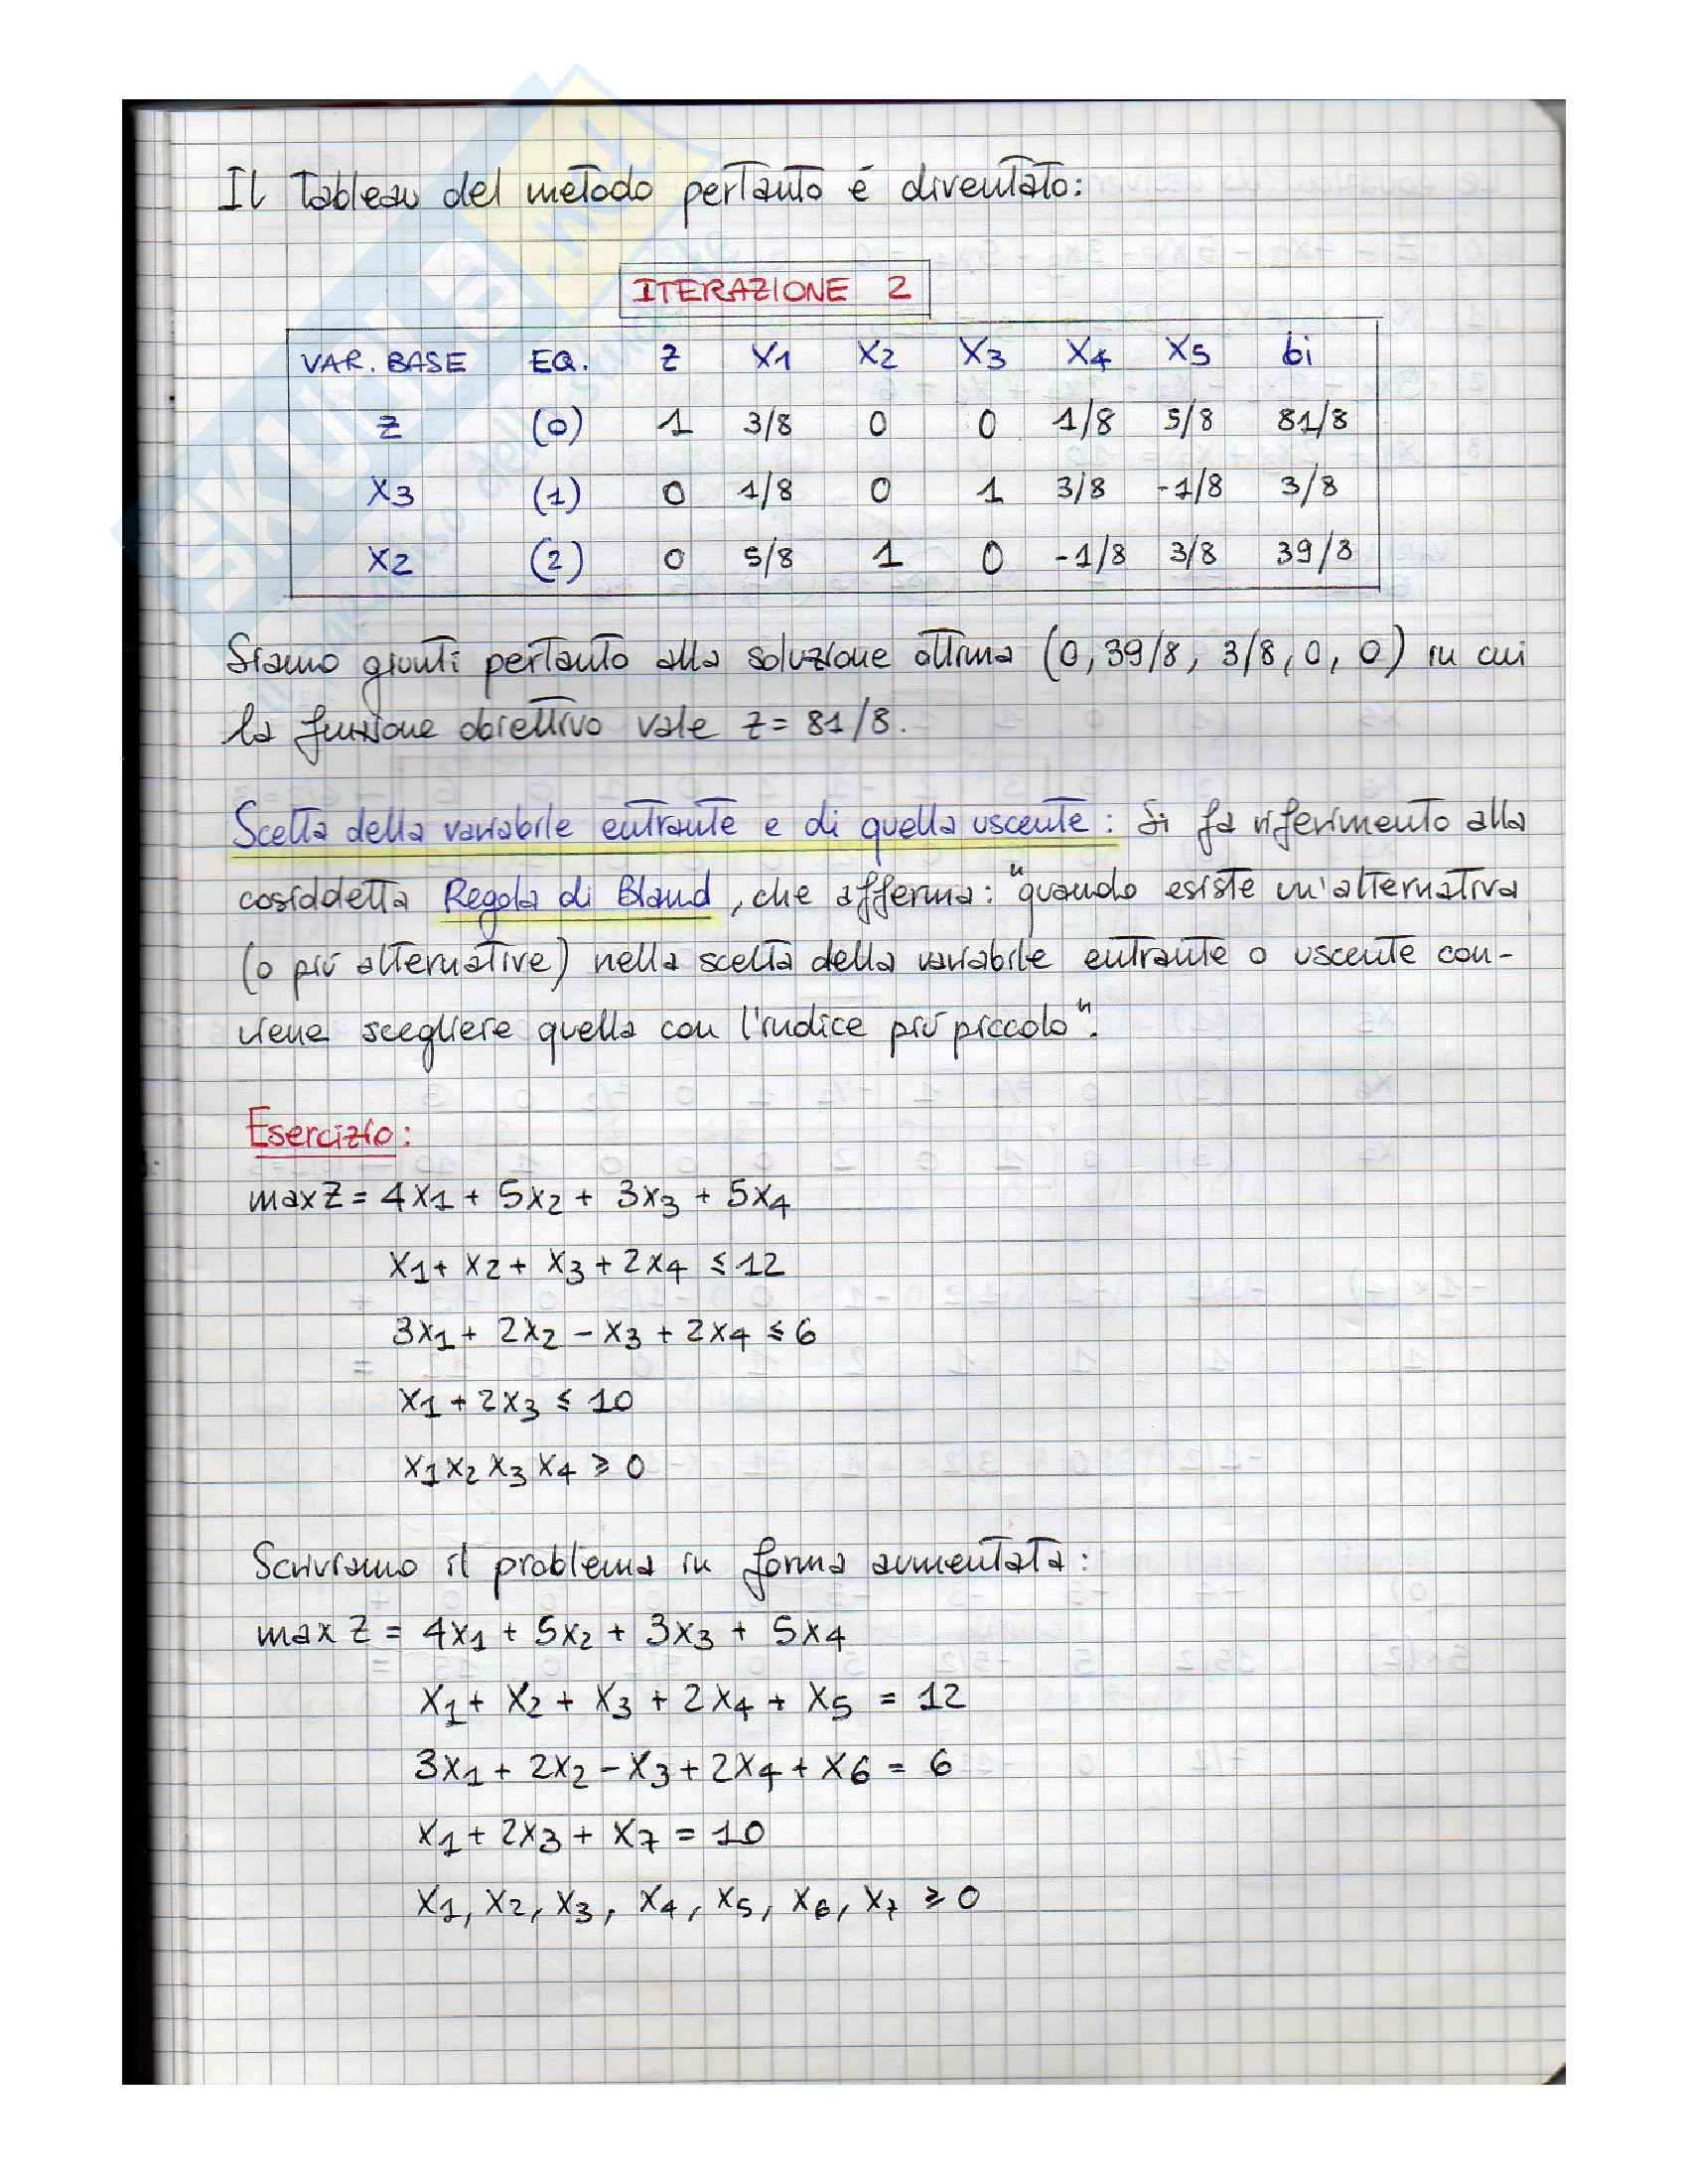 Il tableau del metodo pertanto é diventato:
ITERAZIONE 2
VAR. BASE EQ. Z X1 X2 X3 X4 X5 bi
Z (0) 1 3/8 0 0 1/8 5/8 81/8
X3 (1) 0 1/8 0 1 3/8 -1/8 3/8
X2 (2) 0 5/8 1 0 -1/8 3/8 39/8
Siamo giunti pertanto alla soluzione ottima (0, 39/8, 3/8, 0, 0) in cui
la funzione obiettivo vale z = 81/8.
Scelta della variabile entrante e di quella uscente: si fa riferimento alla
cosiddetta Regola di Bland, che afferma: "quando esiste un'alternativa
(o più alternative) nella scelta della variabile entrante o uscente con-
viene scegliere quella con l'indice più piccolo".
Esercizio:
max Z = 4x1 + 5x2 + 3x3 + 5x4
x1 + x2 + x3 + 2x4 ≤ 12
3x1 + 2x2 - x3 + 2x4 ≤ 6
x1 + 2x3 ≤ 10
x1 x2 x3 x4 ≥ 0
Scriviamo il problema in forma aumentata:
max Z = 4x1 + 5x2 + 3x3 + 5x4
x1 + x2 + x3 + 2x4 + x5 = 12
3x1 + 2x2 - x3 + 2x4 + x6 = 6
x1 + 2x3 + x7 = 10
x1, x2, x3, x4, x5, x6, x7 ≥ 0
SKUOLA.net